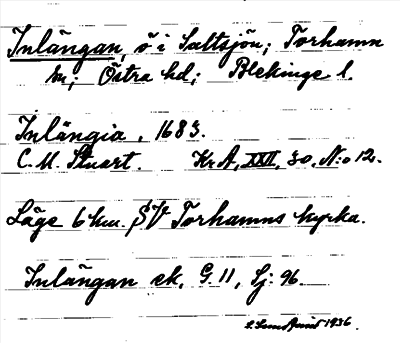 Inlängan, ö i Saltsjön; Torhamn
sn; Östra hd; Blekinge l.
Inlängia, 1683.
C. M. Stuart. Kr A, XXII, 30, N:o 12.
Läge 6 km. SV Torhamns kyrka.
Inlängan ek. G. 11, Sj: 96.
1936.